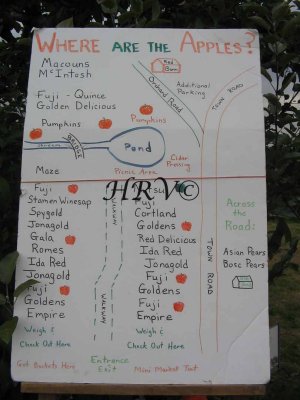 WHERE ARE THE APPLES?
Macouns
McIntosh
Red Barn
Orchard Road
Additional Parking
Town Road
Fuji - Quince
Golden Delicious
Pumpkins
Pumpkins
Stream
Bridge
Pond
Cider Pressing
Maze
Picnic Area
HRVC
Fuji
Stamen Winesap
Spygold
Jonagold
Gala
Romes
Ida Red
Jonagold
Fuji
Goldens
Empire
Weigh &
Check Out Here
Walkway
Walkway
Fuji
Cortland
Goldens
Red Delicious
Ida Red
Jonagold
Fuji
Goldens
Fuji
Empire
Weigh &
Check Out Here
Town Road
Across the Road:
Asian Pears
Bosc Pears
Get Buckets Here
Entrance
Exit
Mini Market Tent